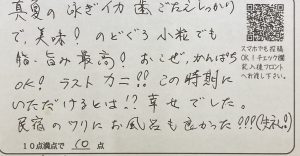 真夏の泳ぎイカ歯ごたえしっかり
で美味! のどぐろ小粒でも
脂・旨み最高! おこぜ、かんぱち
OK! ラストカニ!! この時期に
いただけるとは!? 幸せでした。
民宿のワリにお風呂も良かった!!!(失礼!)
10点満点で 10 点
スマホでも投稿
OK!チェック欄
記入後フロント
へお渡し下さい。